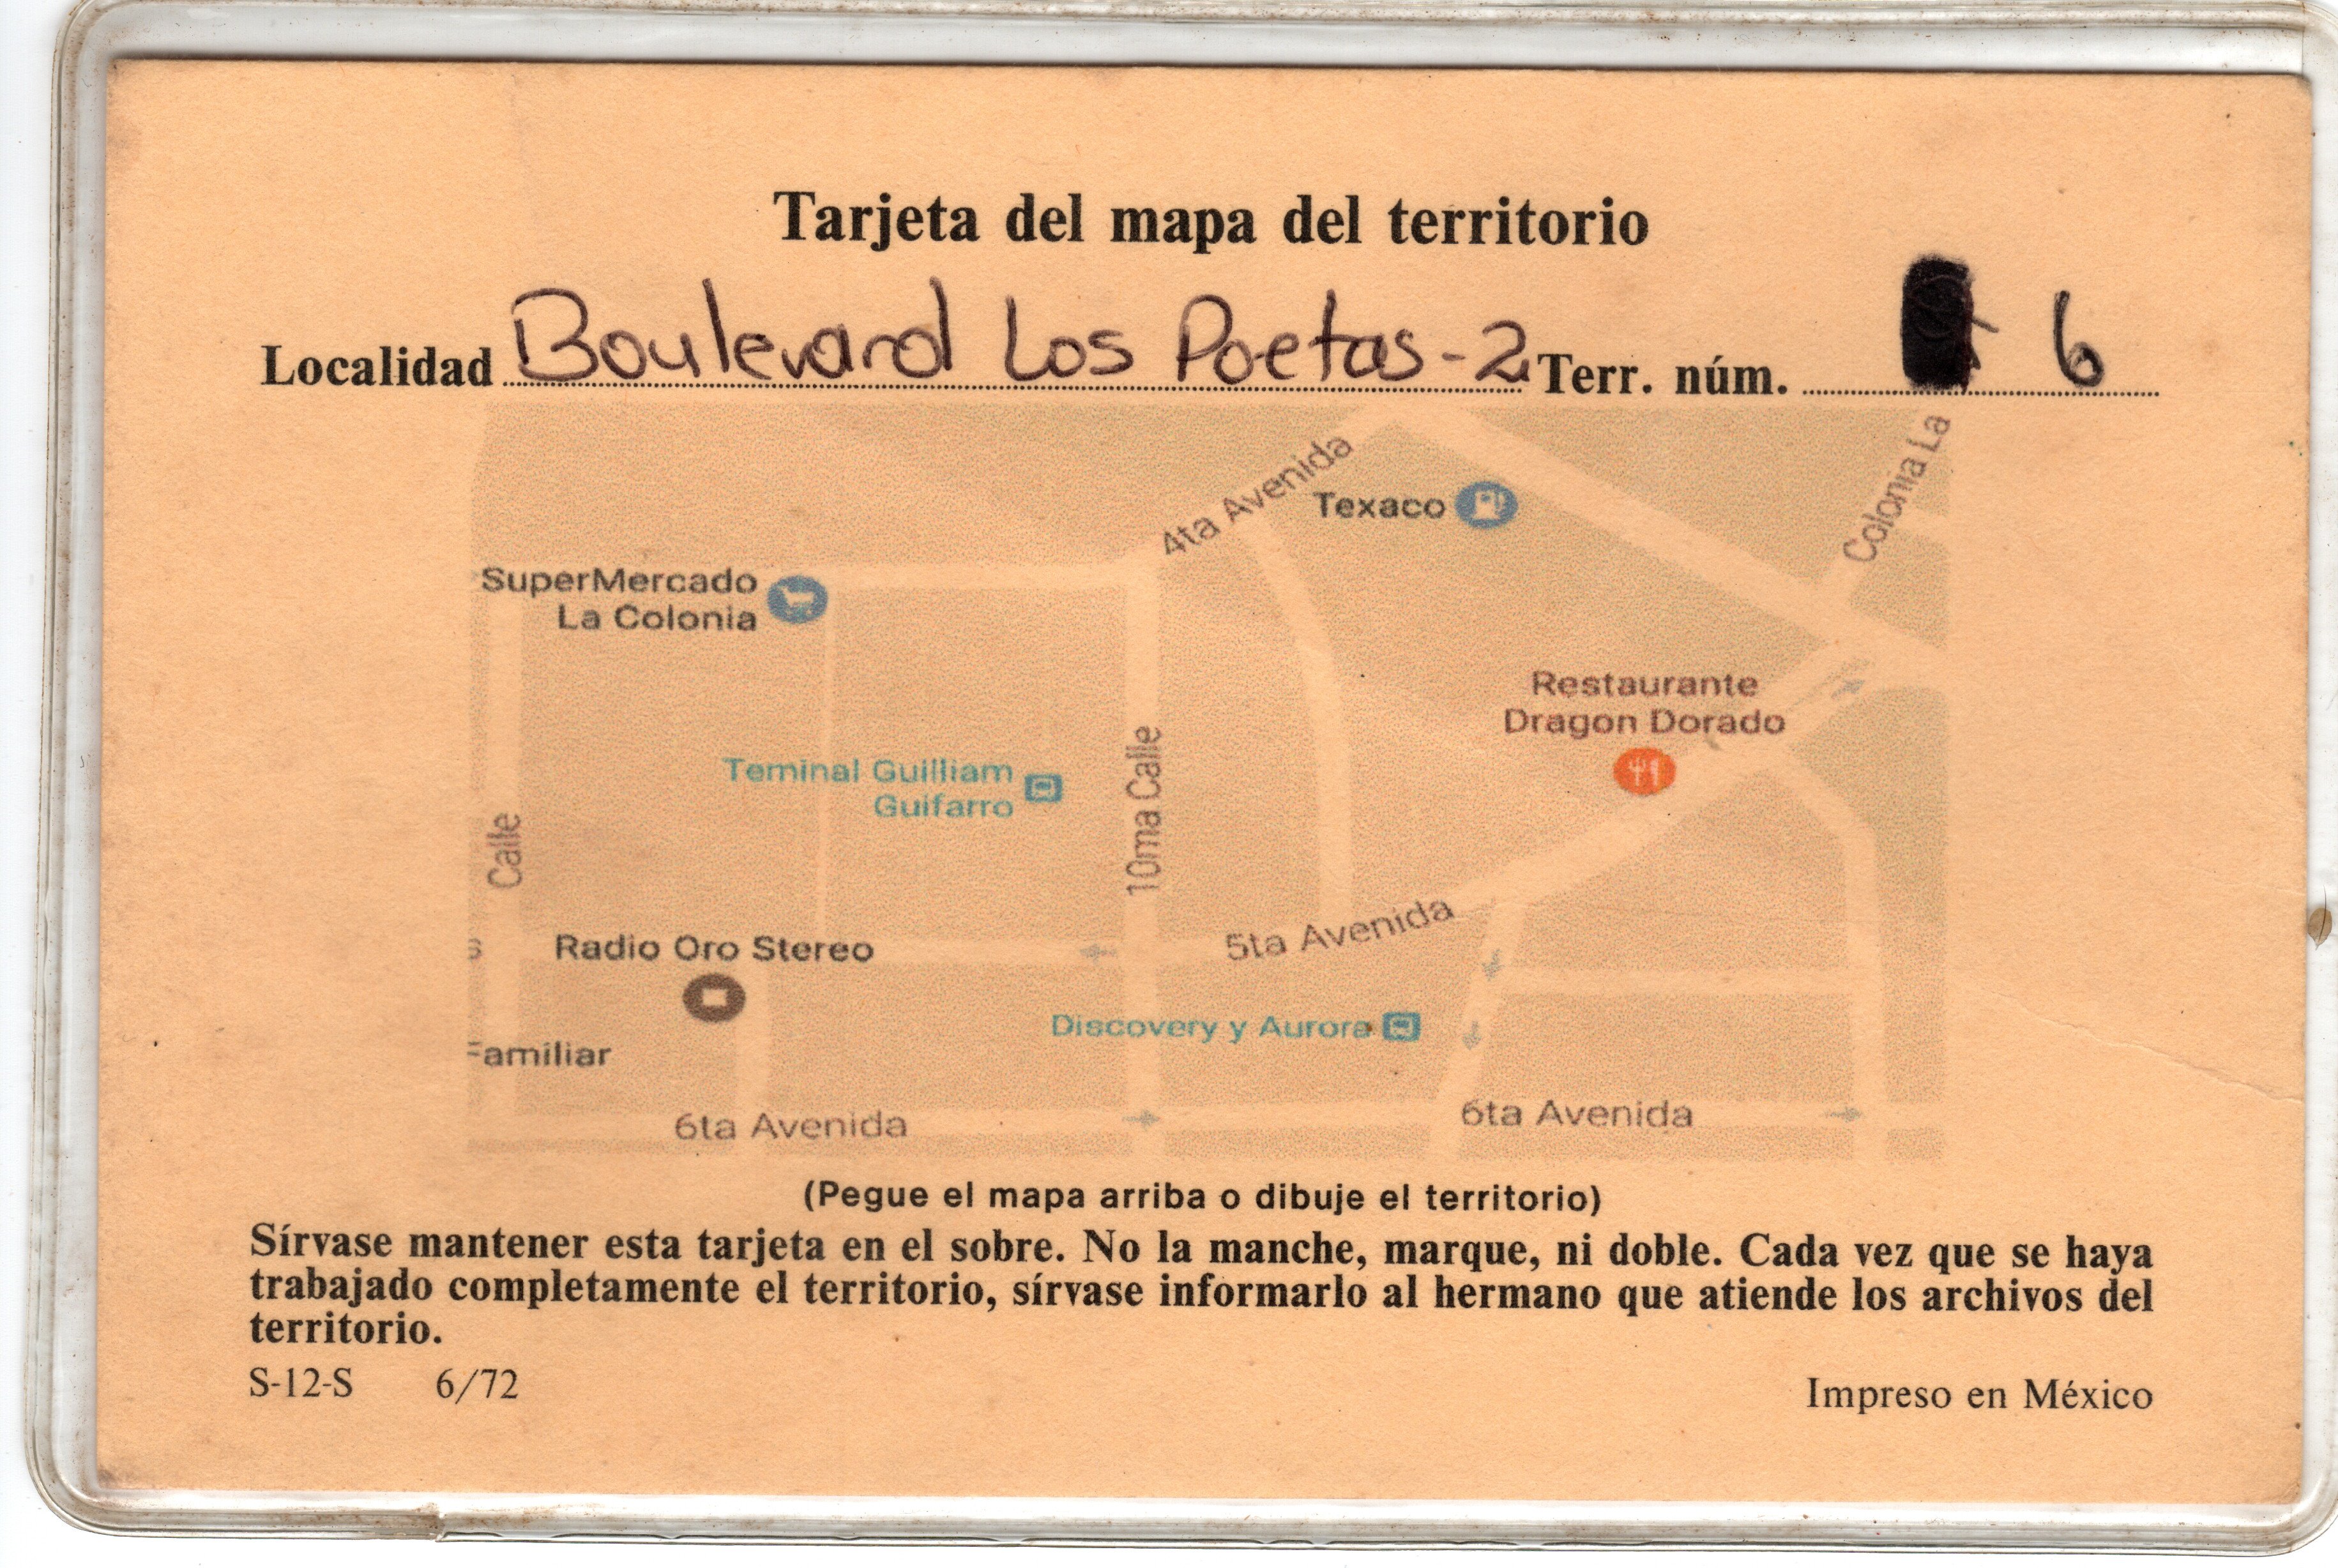 Tarjeta del mapa del territorio
Localidad Boulevard Los Poetas-2 Terr. núm. 6
4ta Avenida
Texaco
Colonia La
SuperMercado
La Colonia
Restaurante
Dragon Dorado
Teminal Guilliam
Guifarro
10ma Calle
Calle
5ta Avenida
s
Radio Oro Stereo
Discovery y Aurora
Familiar
6ta Avenida
6ta Avenida
(Pegue el mapa arriba o dibuje el territorio)
Sírvase mantener esta tarjeta en el sobre. No la manche, marque, ni doble. Cada vez que se haya
trabajado completamente el territorio, sírvase informarlo al hermano que atiende los archivos del
territorio.
S-12-S 6/72
Impreso en México